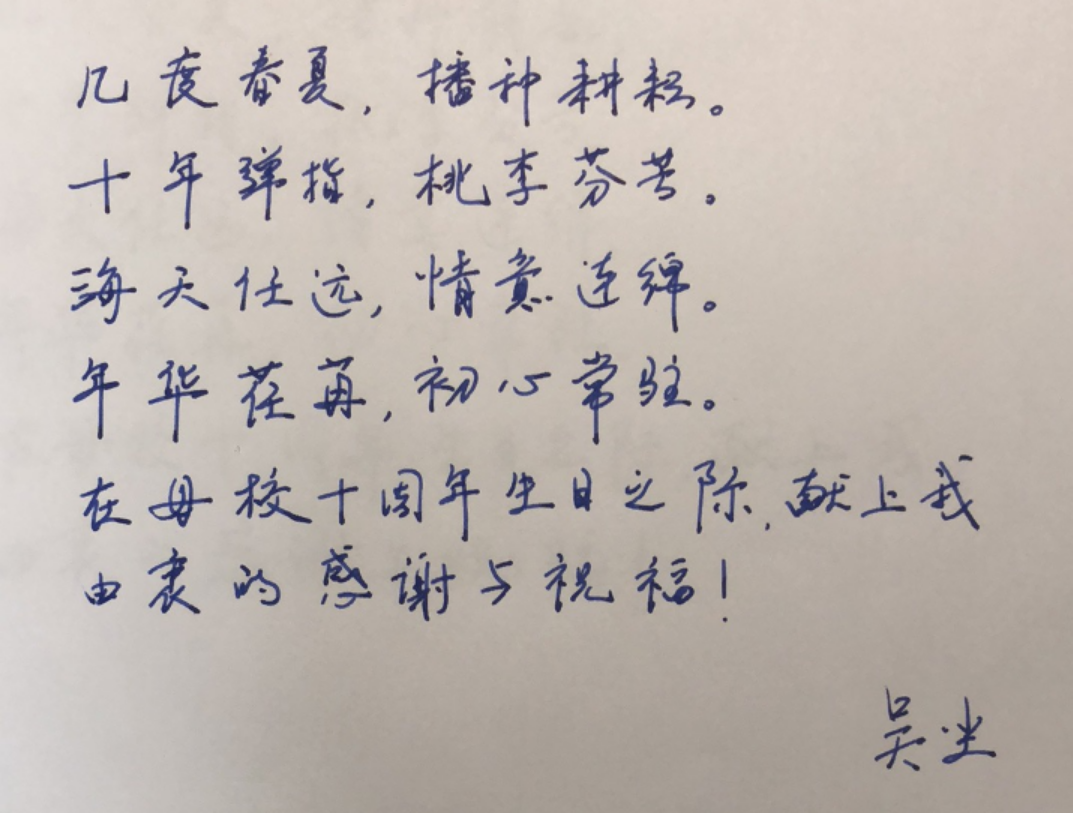 几度春夏,播种耕耘。
十年弹指,桃李芬芳。
海天任远,情意连绵。
年华荏苒,初心常驻。
在母校十周年生日之际,献上我
由衷的感谢与祝福!
吴